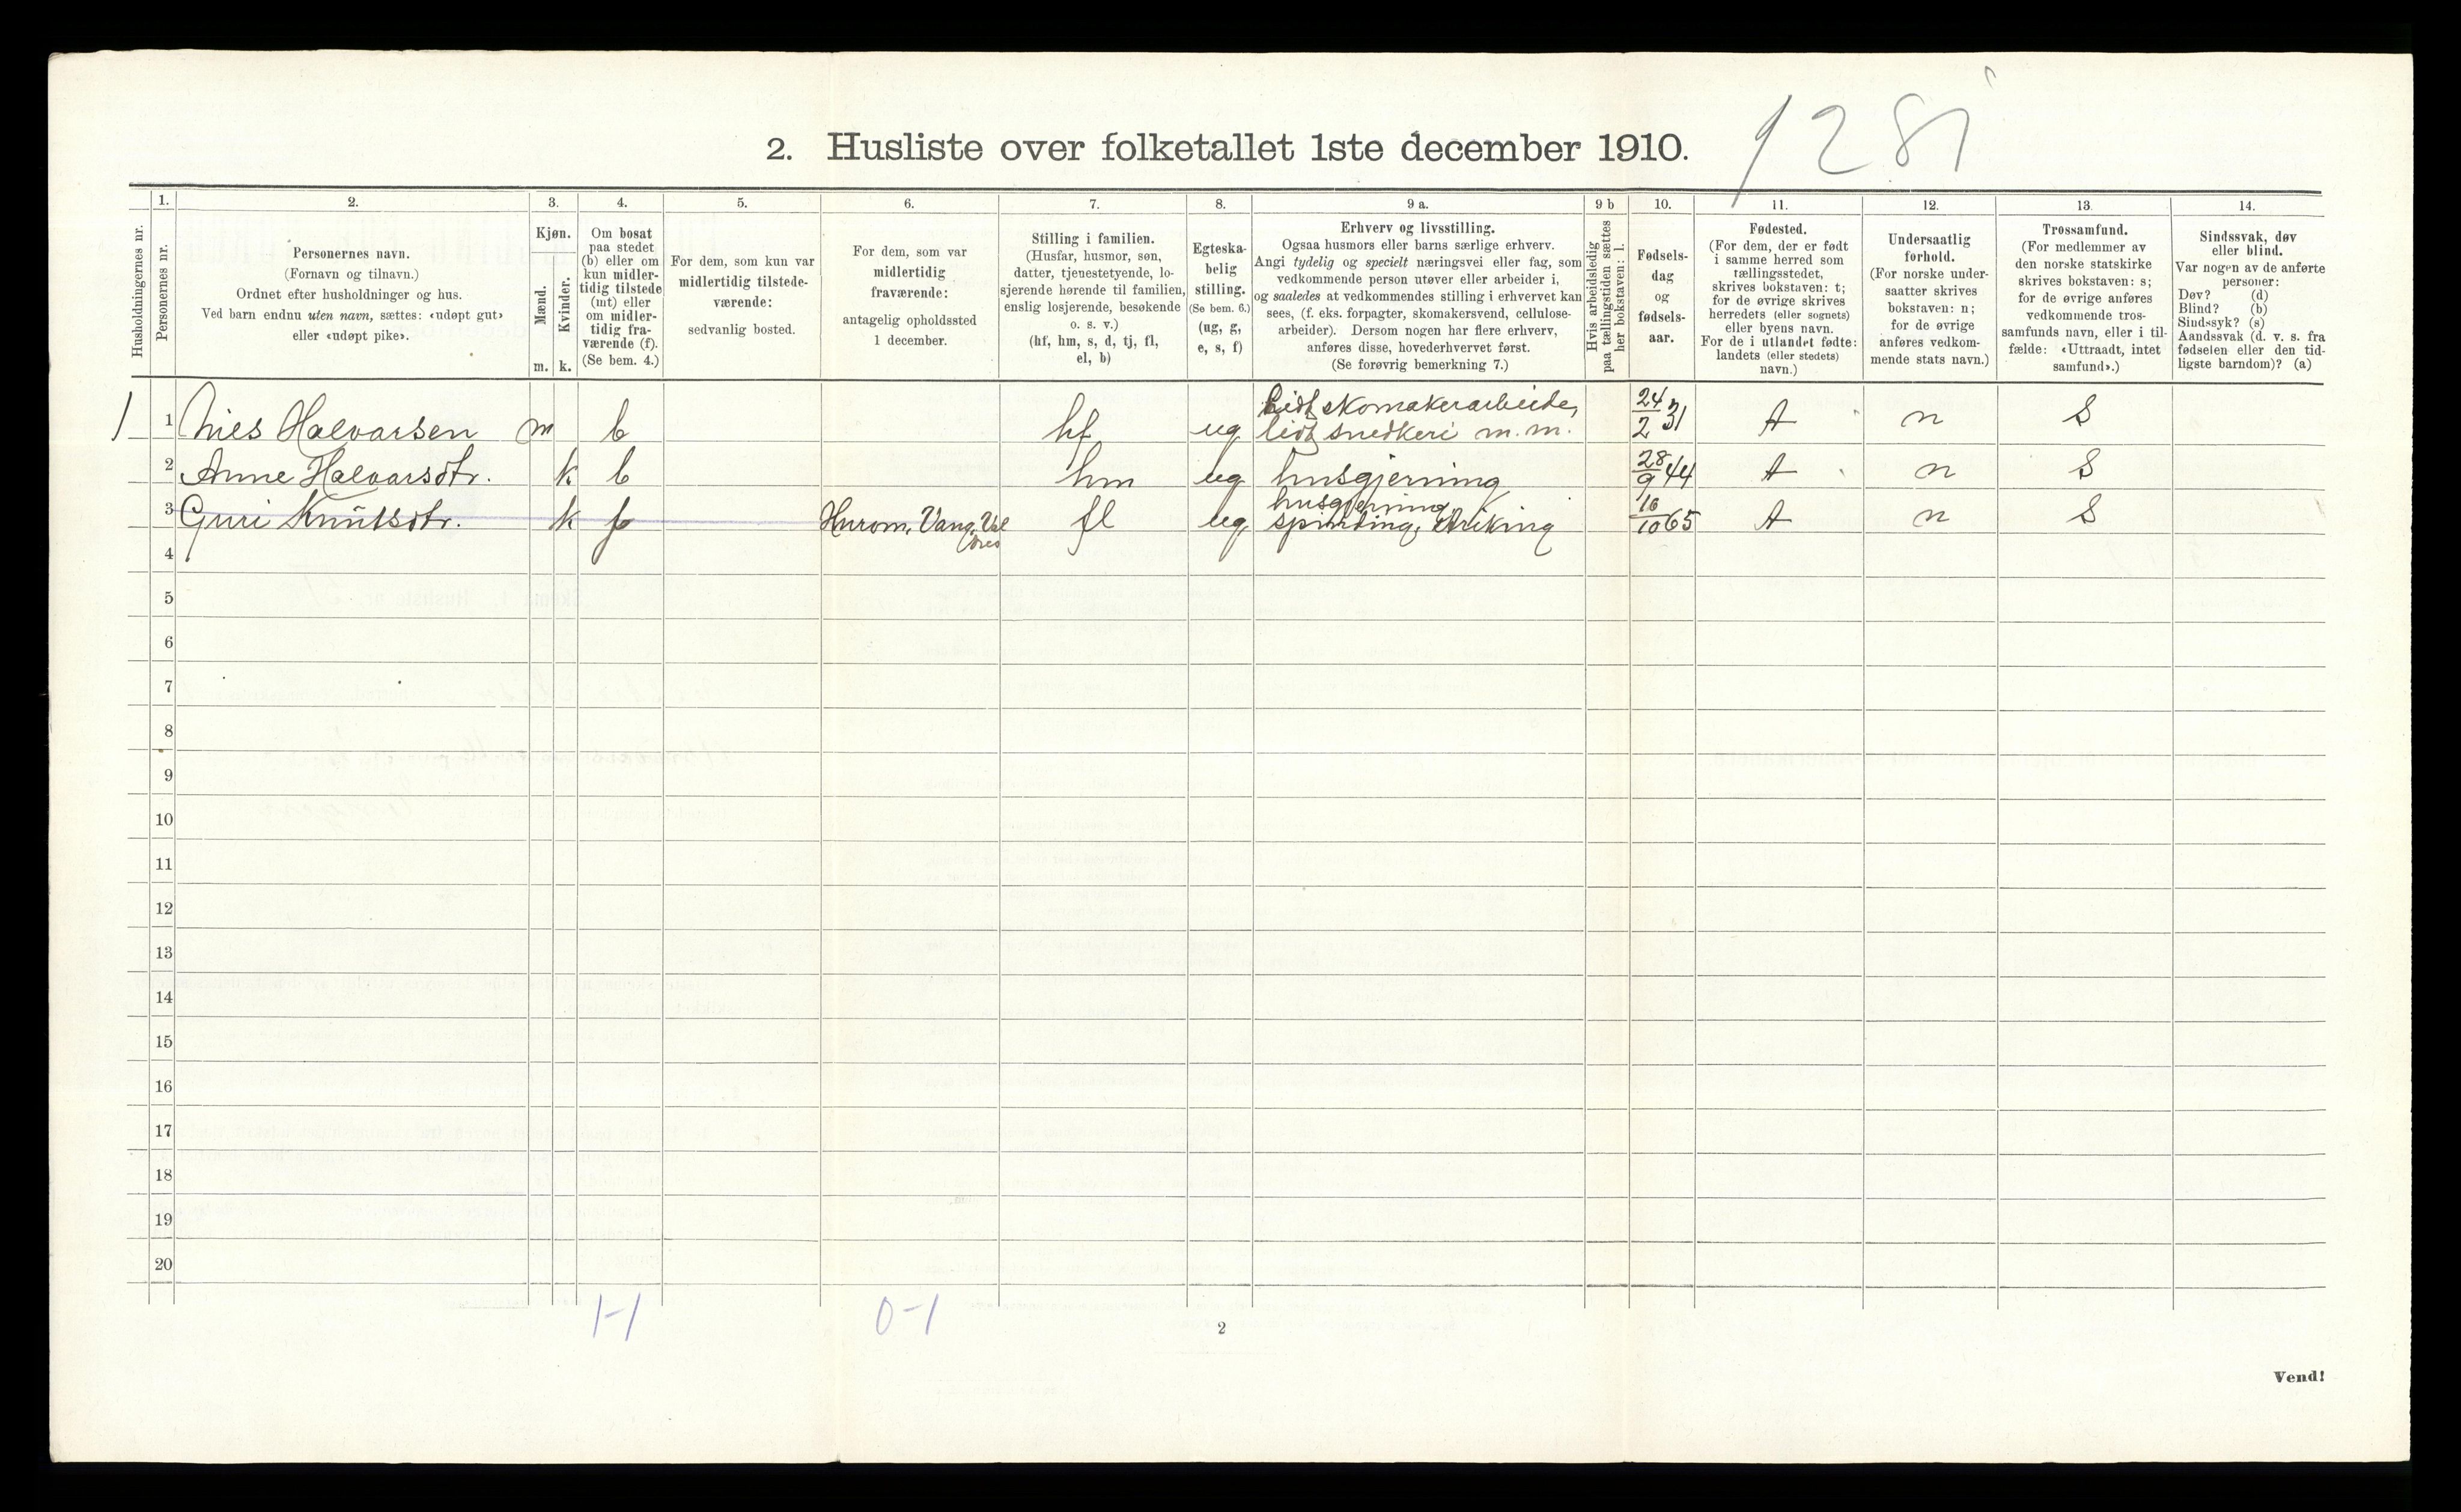 1281
2. Husliste over folketallet 1ste december 1910.
Husholdningernes nr.
1.
Personernes nr.
2.
Personernes navn.
(Fornavn og tilnavn.)
Ordnet efter husholdninger og hus.
Ved barn endnu uten navn, sættes: «udøpt gut»
eller «udøpt pike».
3.
Kjøn.
Mænd.
Kvinder.
m. k.
4.
Om bosat
paa stedet
(b) eller om
kun midler-
tidig tilstede
(mt) eller
om midler-
tidig fra-
værende (f).
(Se bem. 4.)
5.
For dem, som kun var
midlertidig tilstede-
værende:
sedvanlig bosted.
6.
For dem, som var
midlertidig
fraværende:
antagelig opholdssted
1 december.
7.
Stilling i familien.
(Husfar, husmor, søn,
datter, tjenestetyende, lo-
sjerende hørende til familien,
enslig losjerende, besøkende
o. s. v.)
(hf, hm, s, d, tj, fl,
el, b)
8.
Egteska-
belig
stilling.
(Se bem. 6.)
(ug, g,
e, s, f)
9 a.
Erhverv og livsstilling.
Ogsaa husmors eller barns særlige erhverv.
Angi tydelig og specielt næringsvei eller fag, som
vedkommende person utøver eller arbeider i,
og saaledes at vedkommendes stilling i erhvervet kan
sees, (f. eks. forpagter, skomakersvend, cellulose-
arbeider). Dersom nogen har flere erhverv,
anføres disse, hovederhvervet først.
(Se forøvrig bemerkning 7.)
9 b
Hvis arbeidsledig
paa tællingstiden sættes
her bokstaven: l.
10.
Fødsels-
dag
og
fødsels-
aar.
11.
Fødested.
(For dem, der er født
i samme herred som
tællingsstedet,
skrives bokstaven: t;
for de øvrige skrives
herredets (eller sognets)
eller byens navn.
For de i utlandet fødte:
landets (eller stedets)
navn.)
12.
Undersaatlig
forhold.
(For norske under-
saatter skrives
bokstaven: n;
for de øvrige
anføres vedkom-
mende stats navn.)
13.
Trossamfund.
(For medlemmer av
den norske statskirke
skrives bokstaven: s;
for de øvrige anføres
vedkommende tros-
samfunds navn, eller i til-
fælde: «Uttraadt, intet
samfund».)
14.
Sindssvak, døv
eller blind.
Var nogen av de anførte
personer:
Døv? (d)
Blind? (b)
Sindssyk? (s)
Aandssvak (d. v. s. fra
fødselen eller den tid-
ligste barndom)? (a)
1 1 Nils Halvarsen m b hf ug Lidt skomakerarbeide, lidt snedkeri m.m. 24/2 31 t n S
2 Anne Halvarsdtr. k b hm ug husgjerning 28/9 44 t n S
3 Guri Knutsdtr. k f Hurom, Vang, Valdres fl ug husgjerning, spinding, striking 16/10 65 t n S
4
5
6
7
8
9
10
11
12
13
14
15
16
17
18
19
20
1-1 0-1
2
Vend!